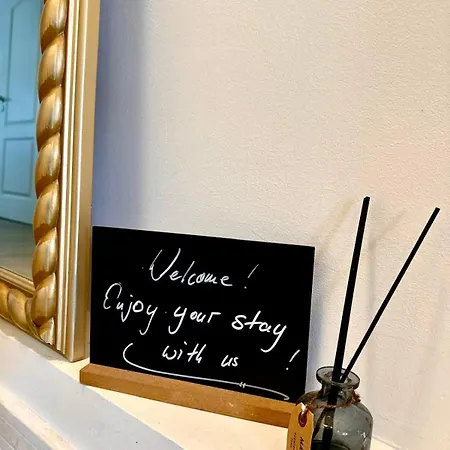 Welcome!
Enjoy your stay
with us !